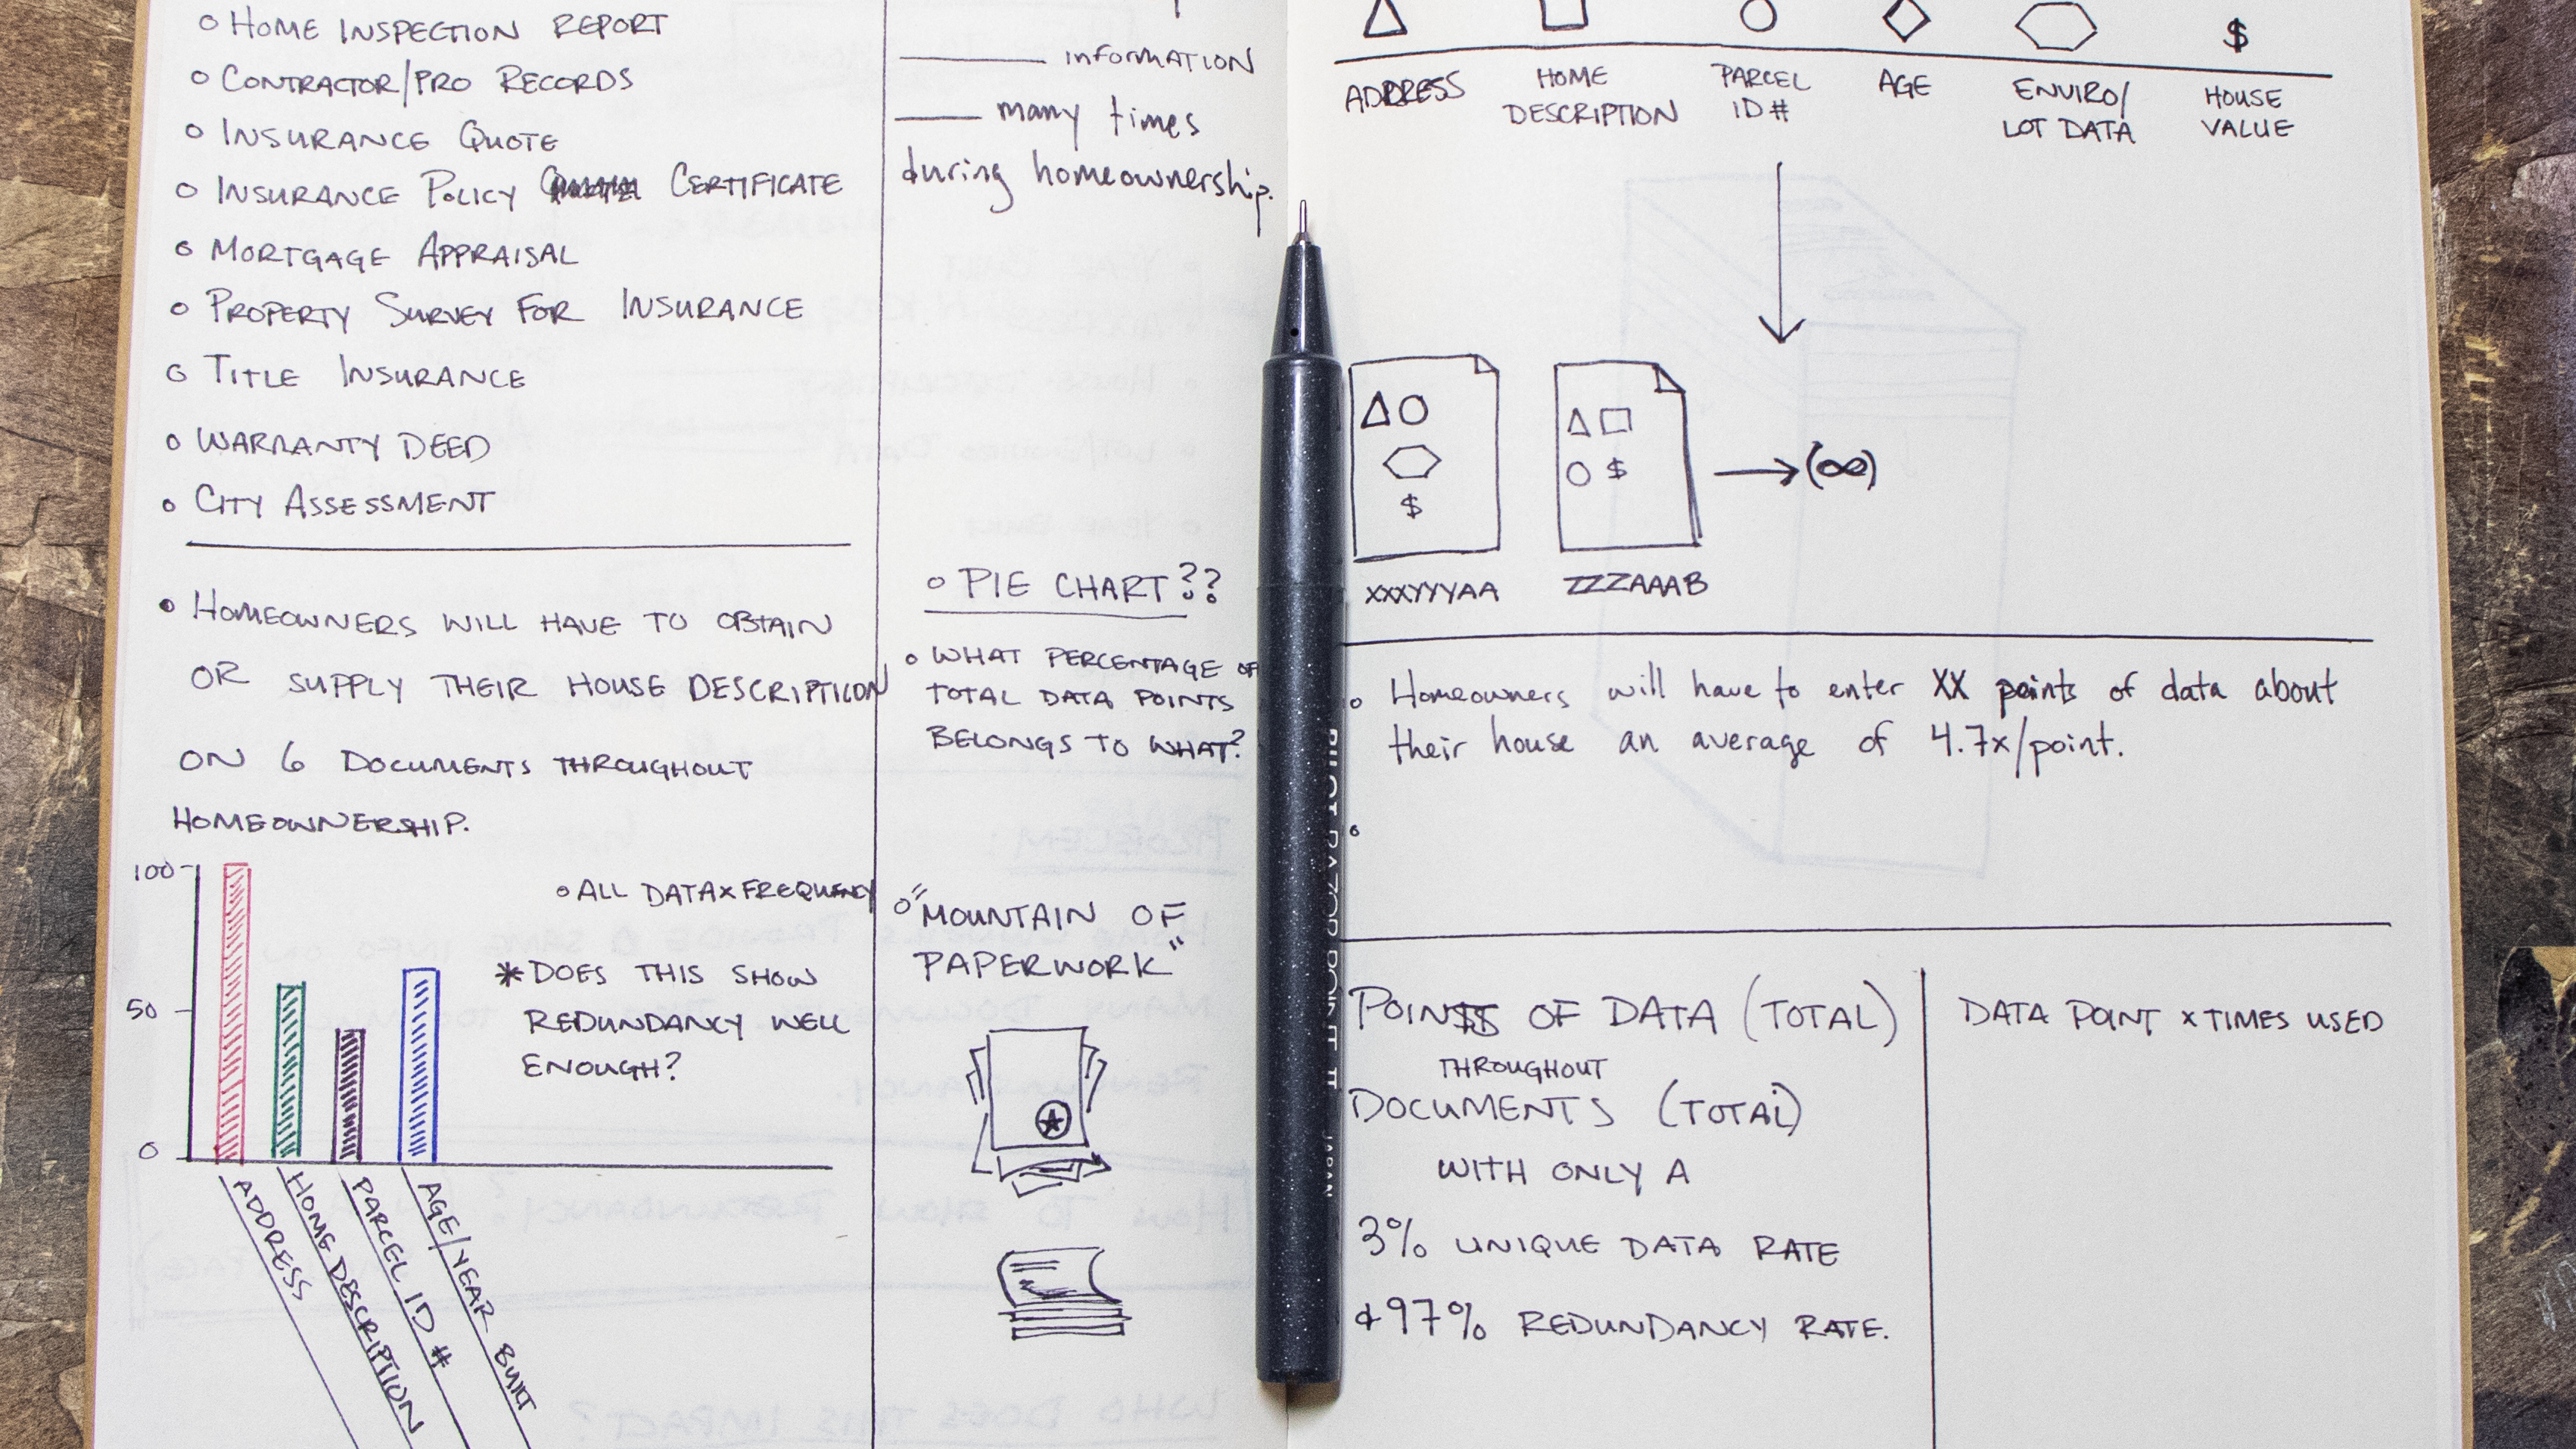 o HOME INSPECTION REPORT
o CONTRACTOR/PRO RECORDS
o INSURANCE QUOTE
o INSURANCE POLICY CERTIFICATE
o MORTGAGE APPRAISAL
o PROPERTY SURVEY FOR INSURANCE
o TITLE INSURANCE
o WARRANTY DEED
o CITY ASSESSMENT
• HOMEOWNERS WILL HAVE TO OBTAIN
OR SUPPLY THEIR HOUSE DESCRIPTION
ON 6 DOCUMENTS THROUGHOUT
HOMEOWNERSHIP.
100
50
0
ADDRESS
HOME DESCRIPTION
PARCEL ID #
AGE/YEAR BUILT
o ALL DATA x FREQUENCY
* DOES THIS SHOW
REDUNDANCY WELL
ENOUGH?
____ information
____ many times
during homeownership.
o PIE CHART??
o WHAT PERCENTAGE OF
TOTAL DATA POINTS
BELONGS TO WHAT?
o "MOUNTAIN OF
PAPERWORK"
$
ADDRESS
HOME
DESCRIPTION
PARCEL
ID #
AGE
ENVIRO/
LOT DATA
HOUSE
VALUE
$
$
→(∞)
XXXYYYAA
ZZZAAAB
o Homeowners will have to enter XX points of data about
their house an average of 4.7x/point.
POINTS OF DATA (TOTAL)
THROUGHOUT
DOCUMENTS (TOTAL)
WITH ONLY A
3% UNIQUE DATA RATE
& 97% REDUNDANCY RATE.
DATA POINT x TIMES USED
JAPAN